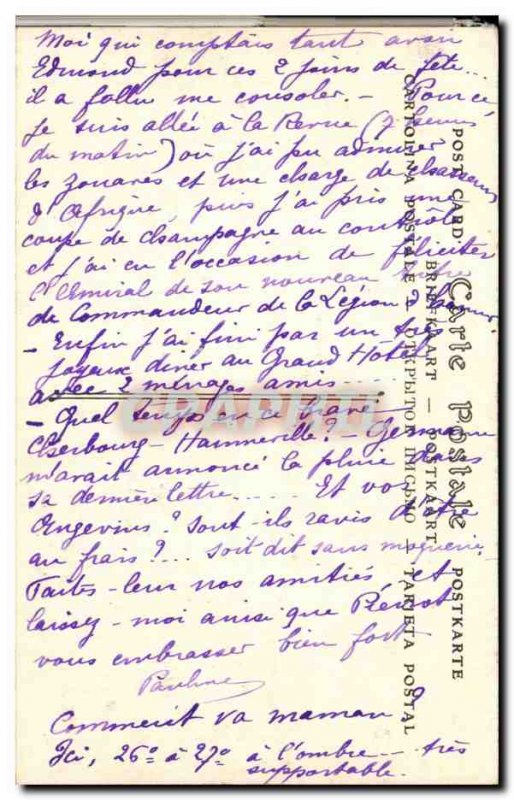 Moi qui comptais tant avoir
Edmond pour ces 2 jours de fête...
il a fallu me consoler. — Pour ce
je suis allée à la Revue (7 heures
du matin) où j'ai pu admirer
les zouaves et une charge de chasseurs
d'Afrique, puis j'ai pris une
coupe de champagne au
et j'ai eu l'occasion de féliciter
l'Amiral de son nouveau titre
de Commandeur de la Légion d'honneur.
— Enfin j'ai fini par un
joyeux diner au Grand Hôtel
avec 2 ménages amis....
— Quel temps
Cherbourg — Hainneville? — Germaine
m'avait annoncé la pluie dans
sa dernière lettre...... Et vos
Angevins? Sont-ils ravis d'être
au frais?... soit dit sans moquerie.
Faites-leur nos amitiés, et
laissez-moi ainsi que
vous embrasser bien fort
Pauline
Comment va maman?
Ici, 26° à 27° à l'ombre — très
supportable.
Carte Postale
POST CARD — BRIEFKAART — POSTKAART — POSTKARTE
CARTOLINA POSTALE — ОТКРЫТОЕ ПИСЬМО — TARJETA POSTAL